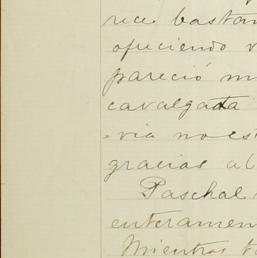 rece bastan
ofreciendo v
pareció m
cavalgata
via no es
gracias al
Paschal
enteramen
Mientras t